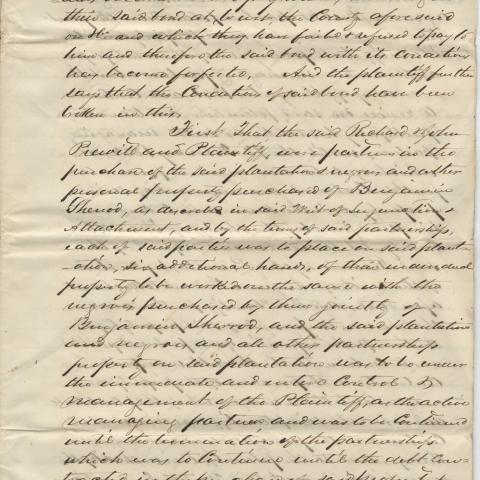 their said bond at to wit, the County aforesaid
and which they have failed & refused to pay to
him and therefore the said bond with its conditions
has become forfeited, And the plaintiff further
says that the Conditions of said bond have been
broken in this.
First That the said Richard & John
Prewitt and Plaintiff, were partners in the
purchase of the said plantation & negroes and other
personal property purchased of Benjamin
Sherrod, as described in said Writ of Injunction &
Attachment, and by the terms of said partnership,
each of said parties was to place on said plant
-ation, six additional hands, of their individual
property to be worked on the same with the
negroes purchased by them jointly of
Benjamin Sherrod, and the said plantation
and negroes and all other partnership
property on said plantation was to be under
the immediate and entire Control &
management of the Plaintiff, as the active
managing partner and was to be Continued
until the termination of the partnership
which was to Continue until the debt Con-
tracted in the purchase of said property